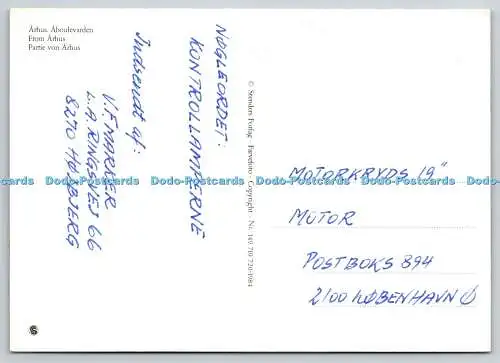 Århus. Åboulevarden
From Århus
Partie von Århus
NØGLEORDET:
KONTROLLAMPERNE
Indsendt af:
V.F. MARKER
L.A. RINGSVEJ 66
8270 HØJBJERG
© Stenders Forlag - Farvefoto - Copyright - Nr. 149 710 730/4984
"MOTORKRYDS 19"
MOTOR
POSTBOKS 894
2100 KØBENHAVN Ø
Dodo-Postcards Dodo-Postcards Dodo-Postcards Dodo-Postcards Dodo-Postcards